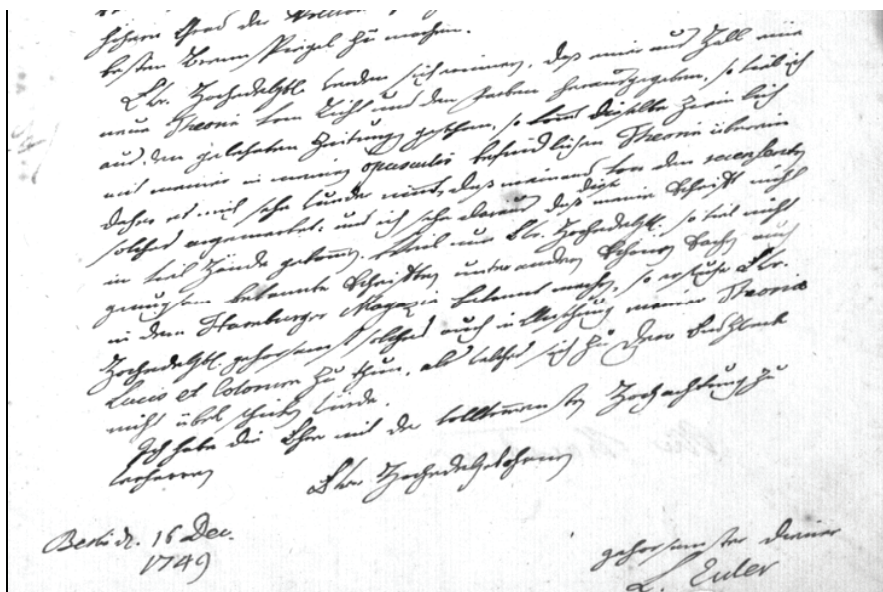 höhern Grad der
besten Brenn Spiegel zu machen.
Ew. Hochedelgbl. werden sich erinnern, daß man aus Hall eine
neue Theorie vom Licht und den Farben herauszugeben, so viel ich
aus den gelehrten Zeitungen gesehen, so kommt dieselbe ziemlich
mit meiner in meinen opusculis befindlichen Theorie überein
daher es mich sehr wunder nimmt, daß niemand von den recensenten
solches angemerket: und ich sehe daraus daß diese meine Schrift nicht
in viel Hände gekommen. Weil nun Ew. Hochedelgb. so viel nicht
genugsam bekannte Schriften unter andern schönen Sachen auch
in dem Hamburger Magazin bekannt machen, so ersuche Ew.
Hochedelgbl. gehorsamst solches auch in Ansehung meiner Theorie
Lucis et Colorum zu thun, als welches sich zu Dero Endzweck
nicht übel schicken würde.
Ich habe die Ehre mit der vollkommensten Hochachtung zu
verharren
Ew. Hochedelgebohren
Berlin d. 16 Dec.
1749
gehorsamster Diener
L. Euler